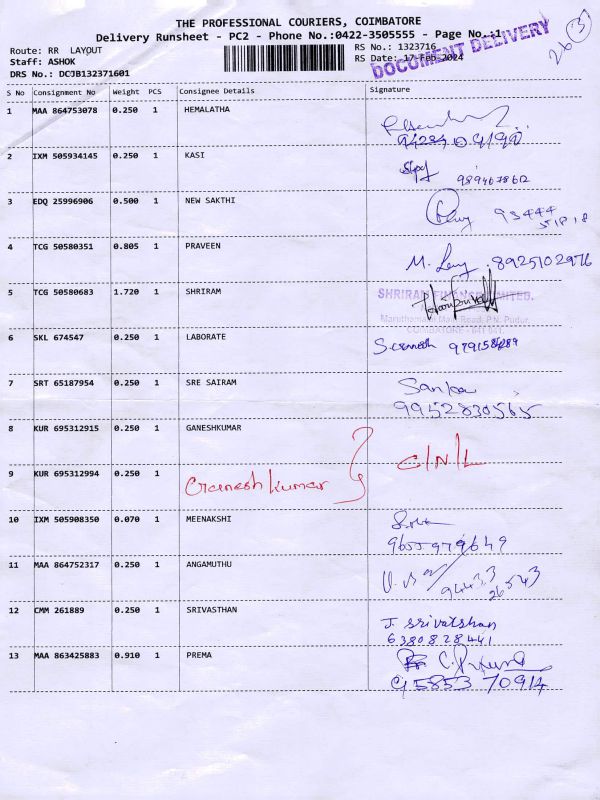 THE PROFESSIONAL COURIERS, COIMBATORE
Delivery Runsheet - PC2 - Phone No.:0422-3505555 - Page No.:1
Route: RR LAYOUT
Staff: ASHOK
DRS No.: DCJB132371601
RS No.: 1323716
RS Date: 17-Feb-2024
DOCUMENT DELIVERY
26 3
S No Consignment No Weight PCS Consignee Details Signature
1 MAA 864753078 0.250 1 HEMALATHA
2 IXM 505934145 0.250 1 KASI
9894678612
3 EDQ 25996906 0.500 1 NEW SAKTHI
93444
51818
4 TCG 50580351 0.805 1 PRAVEEN
M. 8925102976
5 TCG 50580683 1.720 1 SHRIRAM
SHRIRAM FINANCE LIMITED.
Maruthamalai Main Road, P.N. Pudur,
COIMBATORE - 641 041.
6 SKL 674547 0.250 1 LABORATE
7 SRT 65187954 0.250 1 SRE SAIRAM
9952830565
8 KUR 695312915 0.250 1 GANESHKUMAR
9 KUR 695312994 0.250 1 Ganesh kumar C/N/L
10 IXM 505908350 0.070 1 MEENAKSHI
9655979649
11 MAA 864752317 0.250 1 ANGAMUTHU
94433
26543
12 CMM 261889 0.250 1 SRIVASTHAN
J. Srivatshan
6380828441
13 MAA 863425883 0.910 1 PREMA
95853 70914